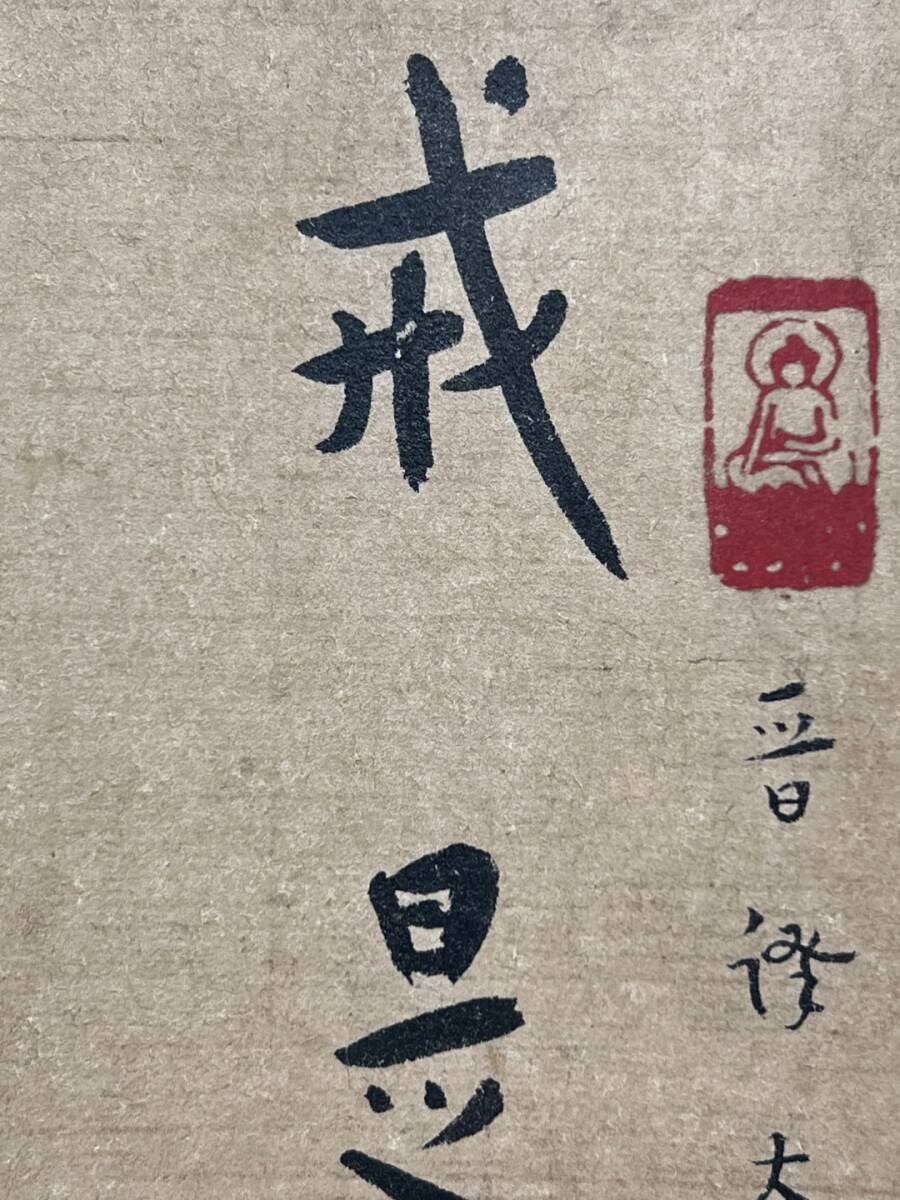 晉譯大
戒是